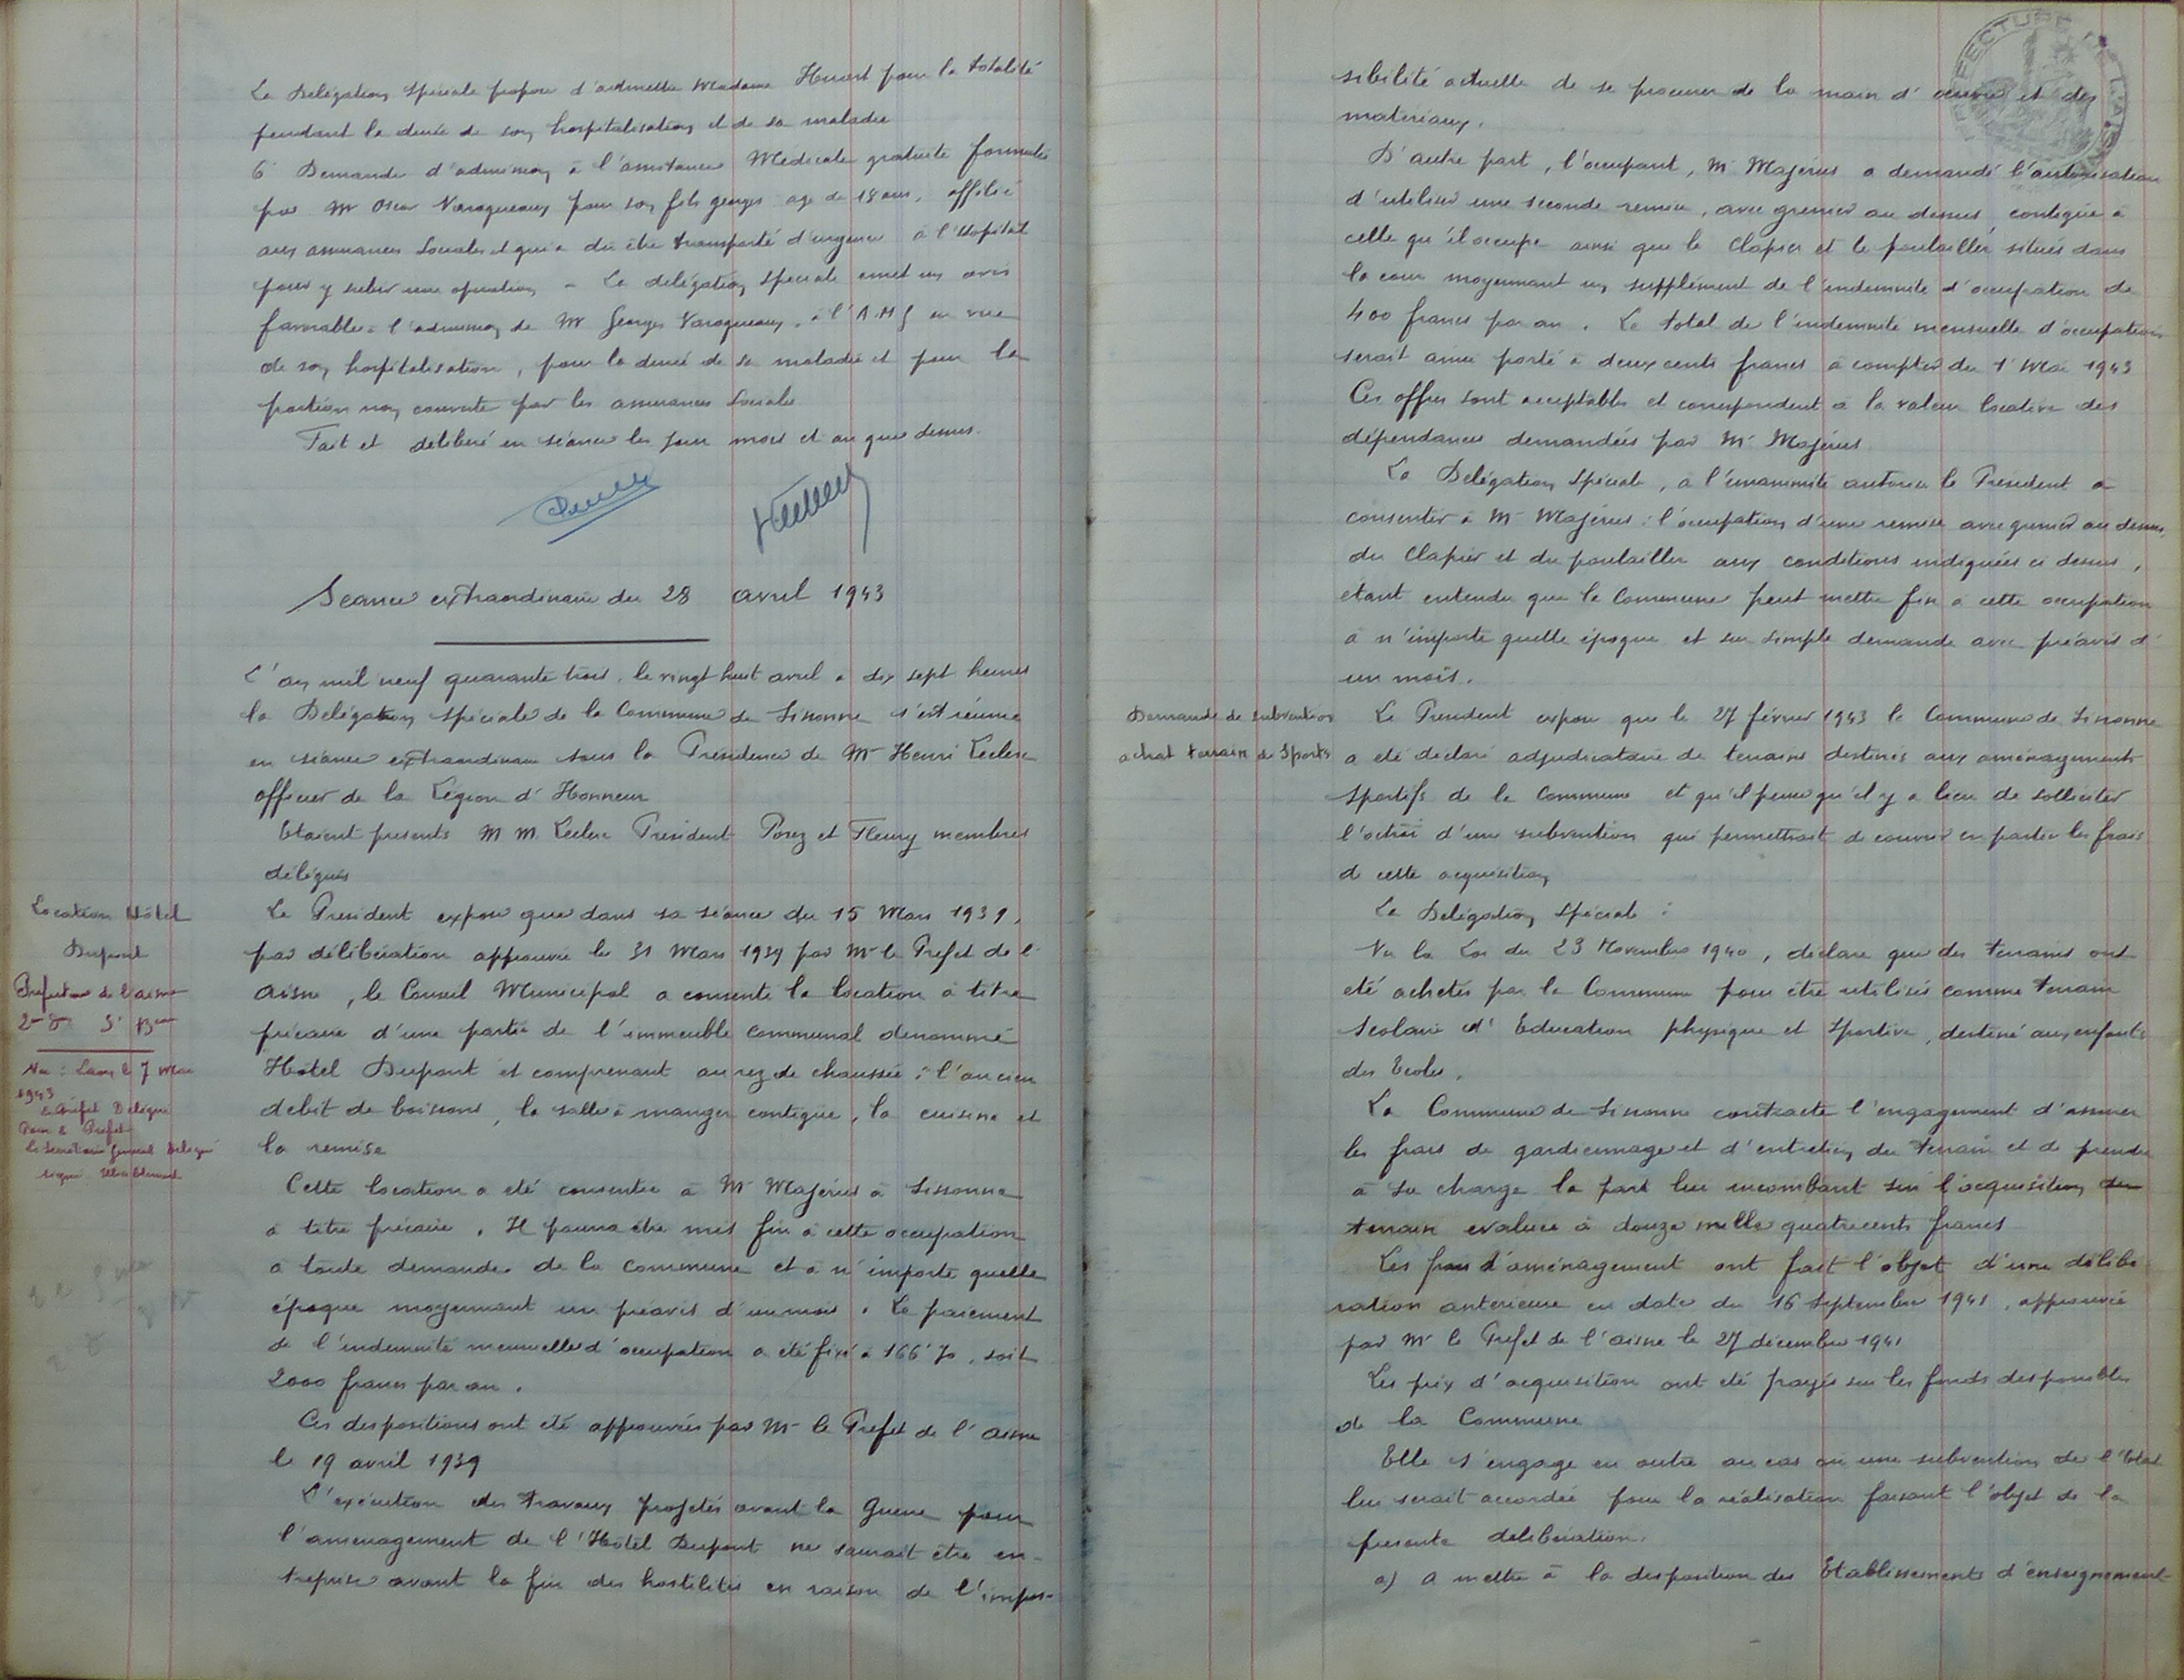 La Délégation Spéciale propose d'admettre Madame Huart pour la totalité
pendant la durée de son hospitalisation et de sa maladie
6° Demande d'admission à l'assistance Médicale gratuite formulée
par Mr Oscar Varoqueaux pour son fils georges age de 18 ans, affilié
aux assurances Sociales et qui a du être transporté d'urgence à l'Hopital
pour y subir une opération - La délégation spéciale emet un avis
favorable à l'admission de Mr Georges Varoqueaux, à l'A.M.G en vue
de son hospitalisation, pour la durée de sa maladie et pour la
portion non couverte par les assurances Sociales
Fait et délibéré en séance les jour mois et an que dessus.
Séance extraordinaire du 28 avril 1943
L'an mil neuf quarante trois, le vingt huit avril à dix sept heures
la Délégation spéciale de la Commune de Sissonne s'est réunie
en séance extraordinaire sous la Présidence de Mr Henri Leclerc
officier de la Légion d'Honneur
Etaient présents M M. Leclerc President Porez et Fleury membres
délégués
Location Hôtel
Dupont
Préfecture de l'aisne
2me Don 3e Beau
Vu : Laon le 7 Mai
1943
Le Préfet Délégué
Pour le Préfet
Le Secrétaire Général Délégué
signé
Le President expose que dans sa séance du 15 Mars 1939,
par délibération approuvée le 31 Mars 1939 par Mr le Prefet de l'
aisne, le Conseil Municipal a consenti la location à titre
précaire d'une partie de l'immeuble communal dénommé
Hôtel Dupont et comprenant au rez de chaussée : l'ancien
débit de boissons, la salle à manger contigüe, la cuisine et
la remise
Cette location a été consentie à Mr Majérus à Sissonne
à titre précaire. Il pourra être mis fin à cette occupation
à toute demande de la commune et à n'importe quelle
époque moyennant un préavis d'un mois. Le paiement
de l'indemnité mensuelle d'occupation a été fixé à 166f70, soit
2000 francs par an.
Ces dispositions ont été approuvées par Mr le Prefet de l'aisne
le 19 avril 1939
L'exécution des travaux projetés avant la guerre pour
l'amenagement de l'Hôtel Dupont ne saurait être en-
treprise avant la fin des hostilités en raison de l'impos-
sibilité actuelle de se procurer de la main d'œuvre et des
matériaux.
D'autre part, l'occupant, Mr Majérus a demandé l'autorisation
d'utiliser une seconde remise, avec grenier au dessus contigüe à
celle qu'il occupe ainsi que le clapier et le poulailler situés dans
la cour moyennant un supplément de l'indemnité d'occupation de
400 francs par an. Le total de l'indemnité mensuelle d'occupation
serait ainsi porté à deux cents francs à compter du 1er Mai 1943
Ces offres sont acceptables et correspondent à la valeur locative des
dépendances demandées par Mr Majérus
La Délégation Spéciale, à l'unanimité autorise le President a
consentir à Mr Majérus : l'occupation d'une remise avec grenier au dessus,
du clapier et du poulailler aux conditions indiquées ci dessus,
étant entendu que la Commune peut mettre fin à cette occupation
à n'importe quelle époque et sur simple demande avec préavis d'
un mois.
Demande de subvention
achat terrain de Sports
Le President expose que le 27 février 1943 la Commune de Sissonne
a été déclaré adjudicataire de terrains destinés aux aménagements
sportifs de la Commune et qu'il pense qu'il y a lieu de solliciter
l'octroi d'une subvention qui permettrait de couvrir en partie les frais
de cette acquisition
La Délégation Spéciale :
Vu la Loi du 23 Novembre 1940, déclare que des terrains ont
été achetés par la Commune pour être utilisés comme terrain
Scolaire d'Education physique et Sportive, destiné aux enfants
des Ecoles.
La Commune de Sissonne contracte l'engagement d'assurer
les frais de gardiennage et d'entretien du terrain et de prendre
à sa charge la part lui incombant sur l'acquisition du
terrain evaluée à douze mille quatre cents francs
Les frais d'aménagement ont fait l'objet d'une délibé
ration antérieure en date du 16 Septembre 1941, approuvée
par Mr le Prefet de l'aisne le 27 décembre 1941
Les prix d'acquisition ont été payés sur les fonds disponibles
de la Commune
Elle s'engage en outre au cas où une subvention de l'Etat
lui serait accordée pour la réalisation faisant l'objet de la
présente délibération.
a) A mettre à la disposition des Etablissements d'enseignement